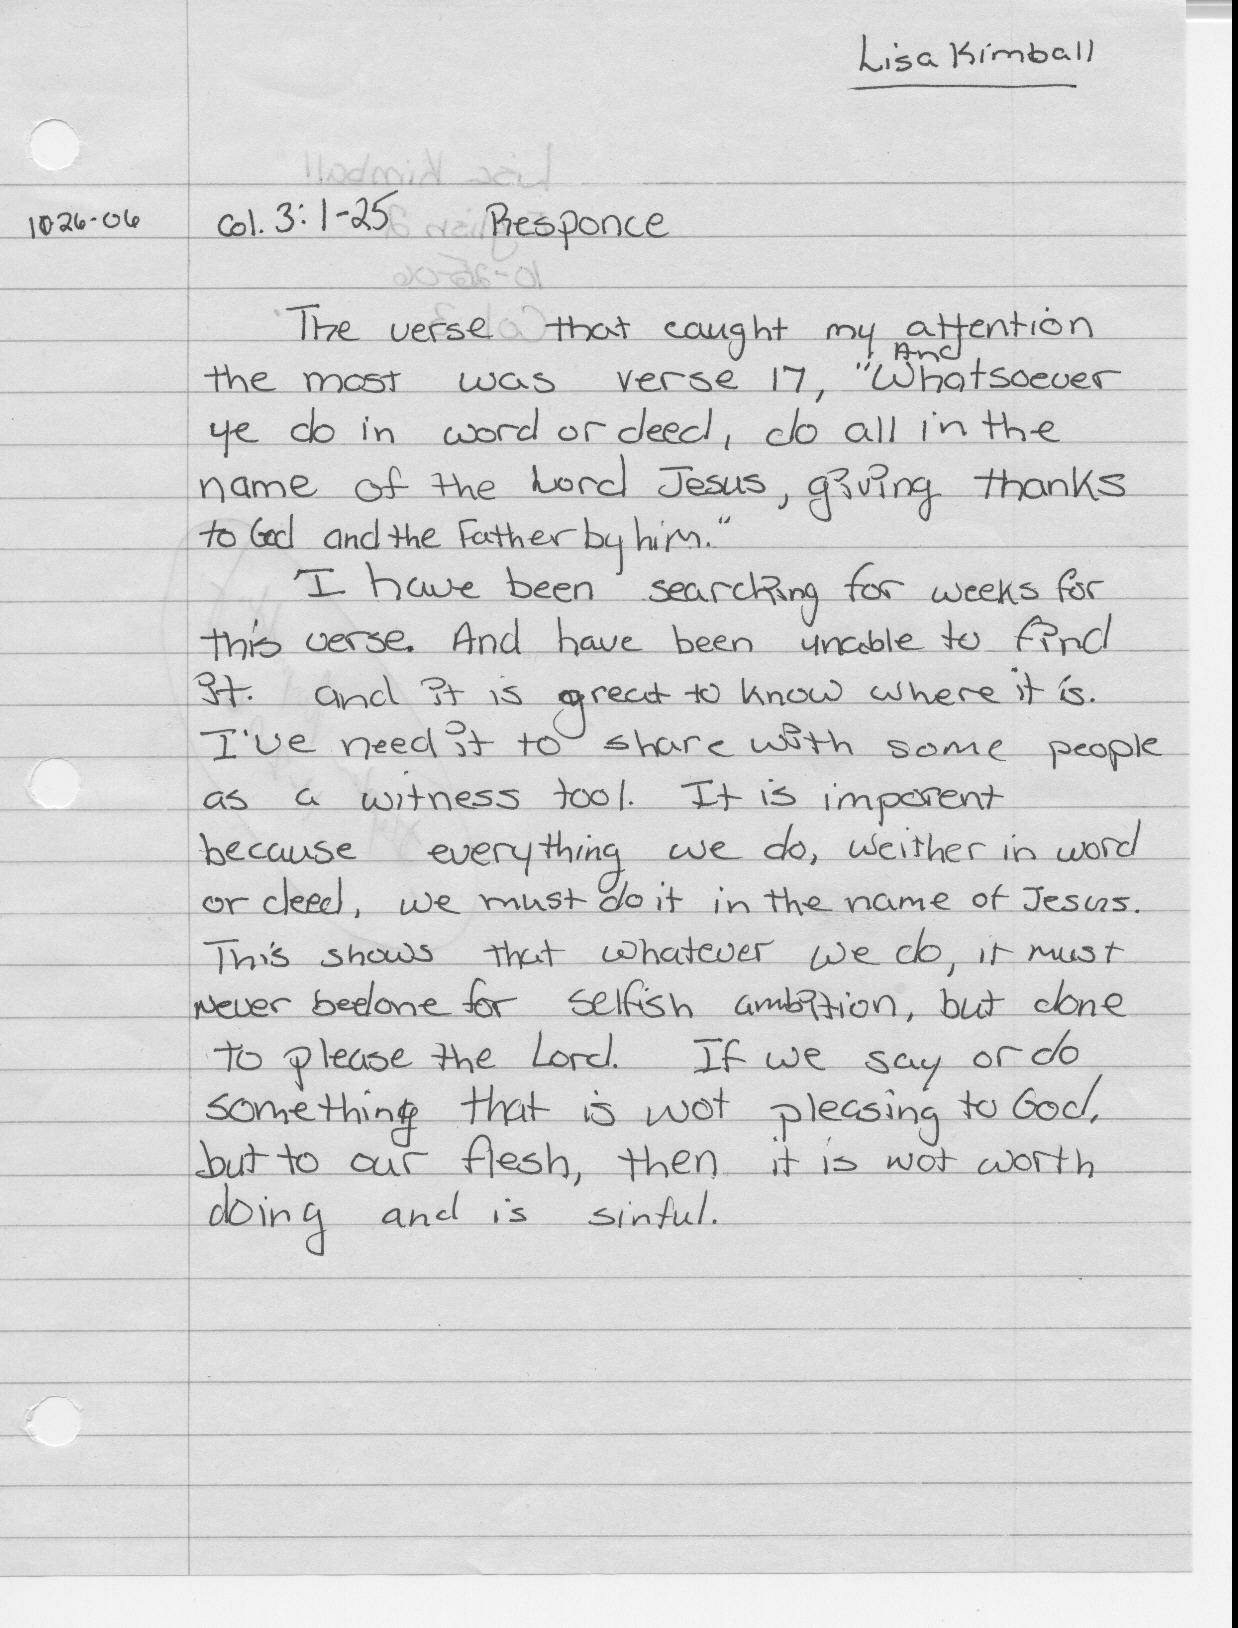 Lisa Kimball
1026-06 Col. 3:1-25 Responce
The verse that caught my attention
the most was verse 17, "And Whatsoever
ye do in word or deed, do all in the
name of the Lord Jesus, giving thanks
to God and the Father by him."
I have been searching for weeks for
this verse. And have been unable to find
it. and it is great to know where it is.
I've need it to share with some people
as a witness tool. It is imporent
because everything we do, weither in word
or deed, we must do it in the name of Jesus.
This shows that whatever we do, it must
never be done for selfish ambition, but done
to please the Lord. If we say or do
something that is not pleasing to God,
but to our flesh, then it is not worth
doing and is sinful.